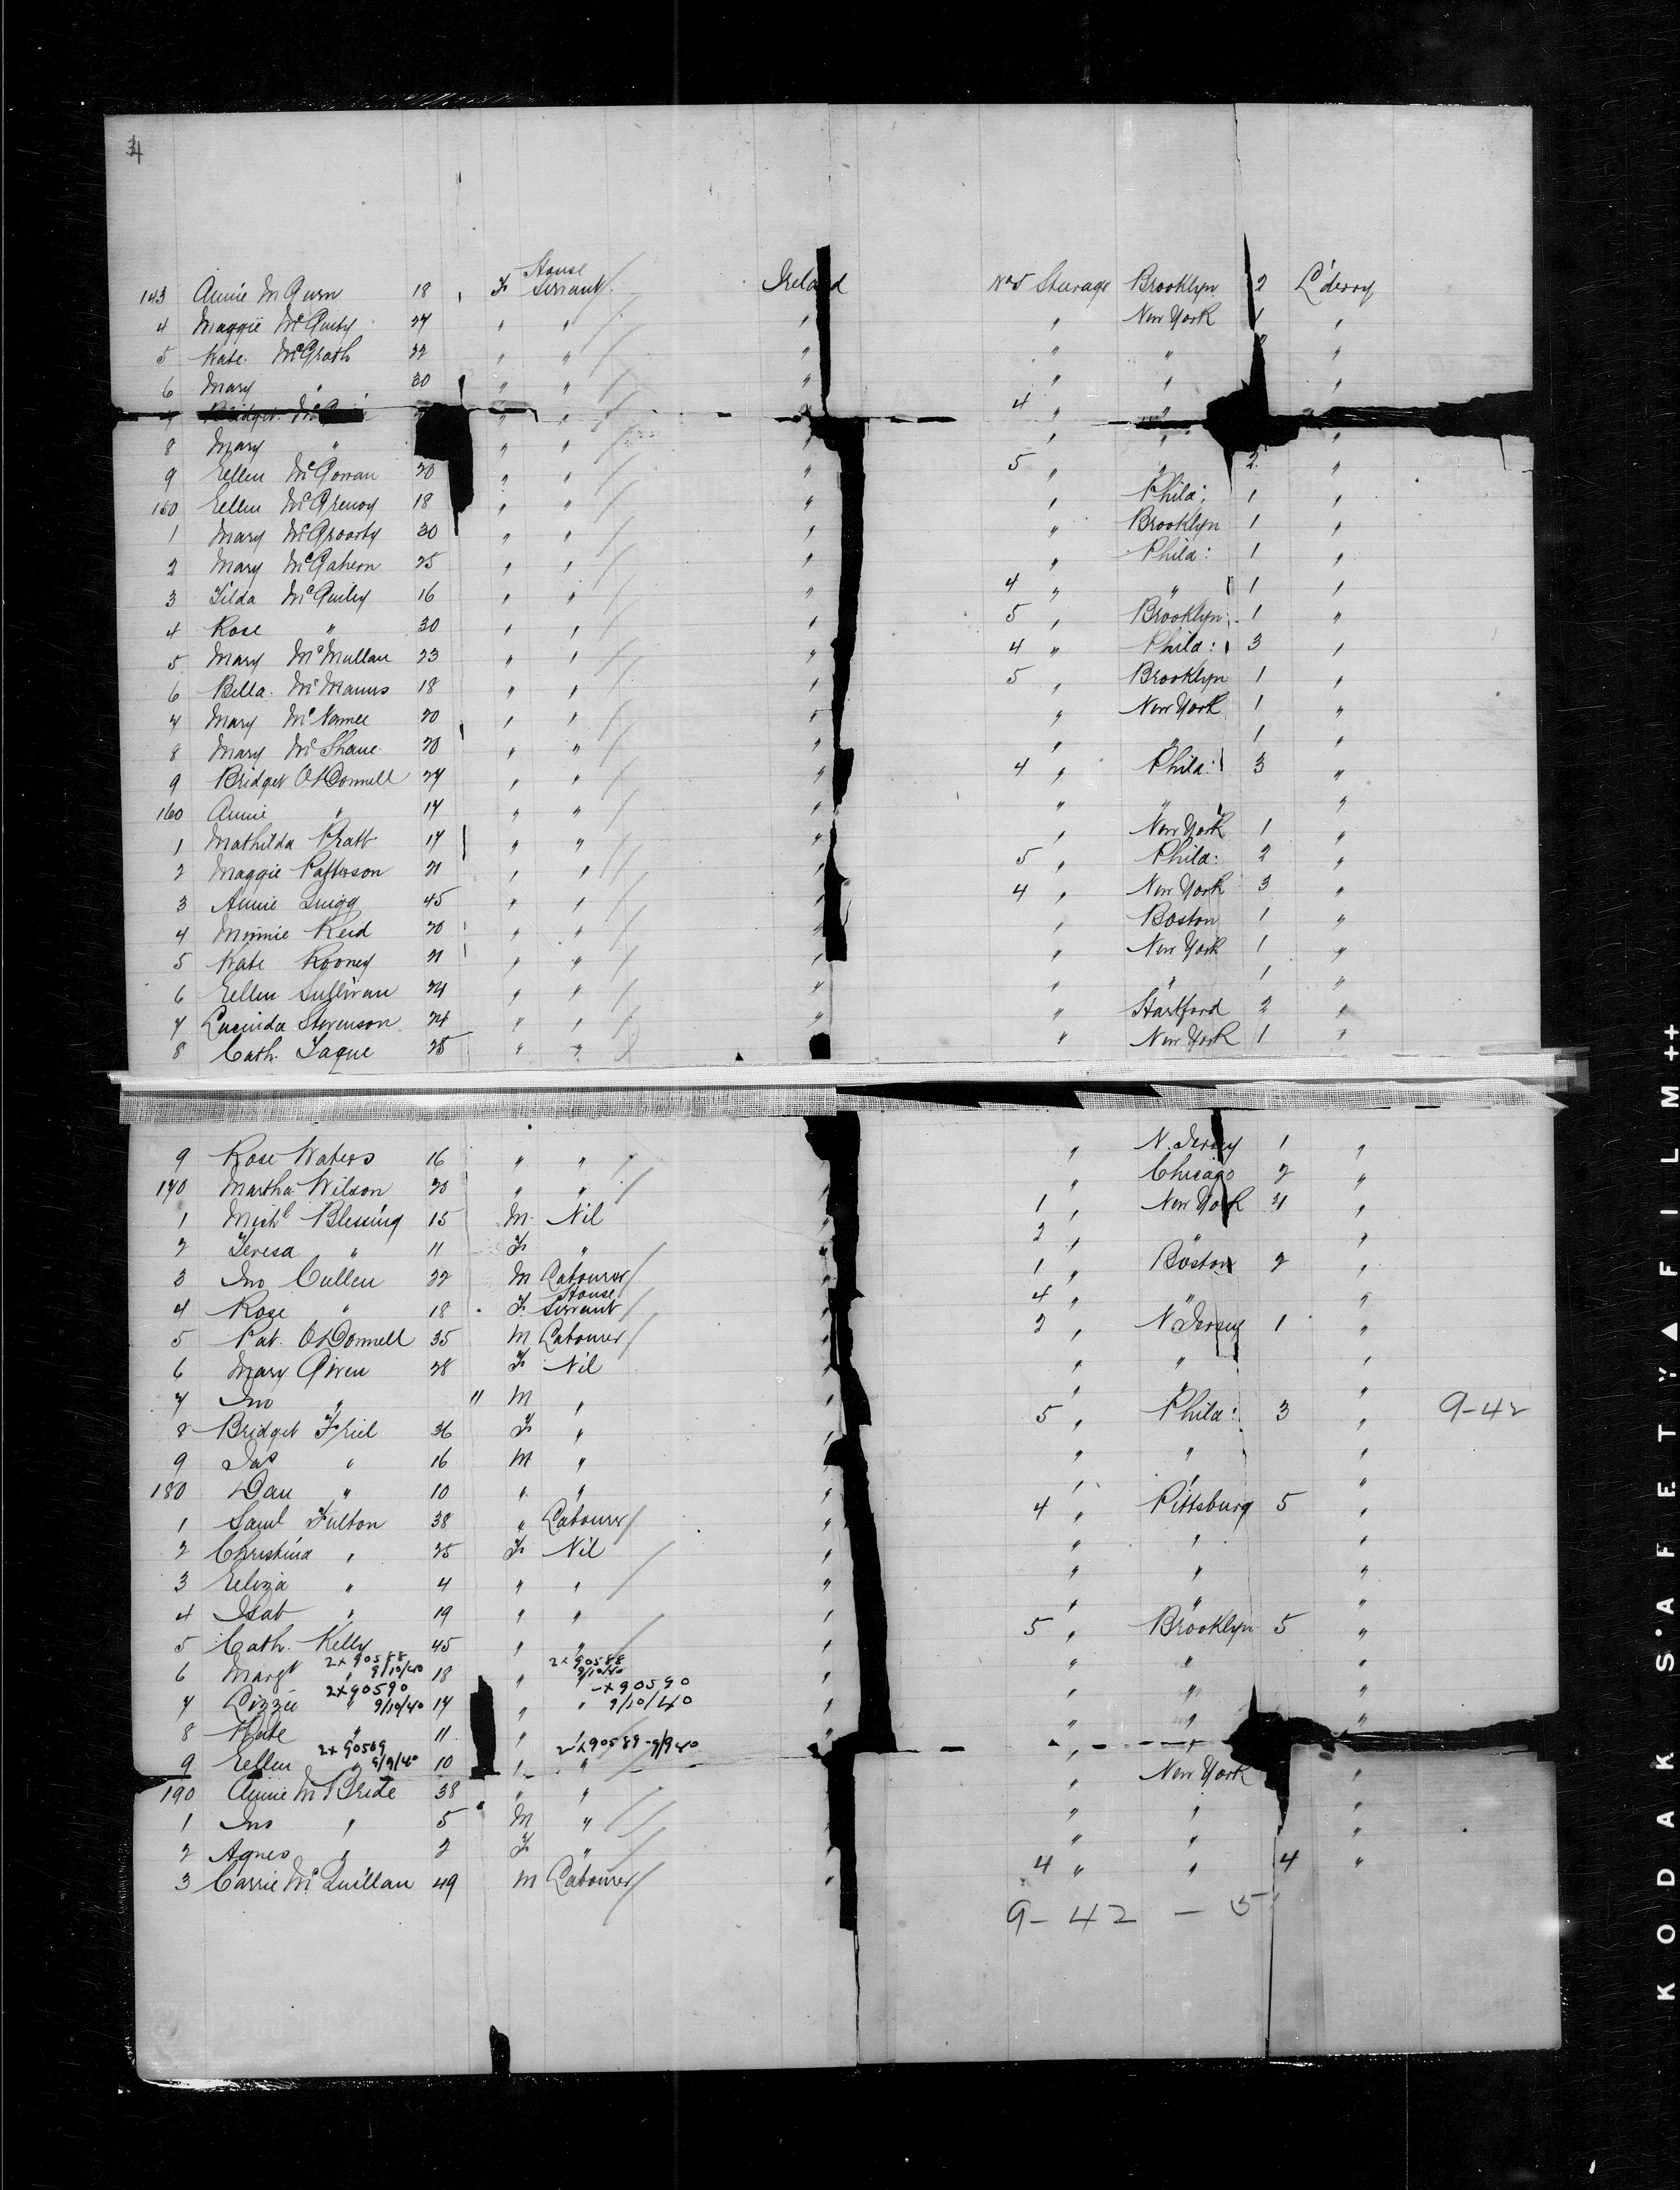 4
143 Annie McGurn 18 F House Servant Ireland No 5 Steerage Brooklyn 2 L'derry
4 Maggie McGinty 24 " " " " New York 1 "
5 Kate McGrath 22 " " " " " "
6 Mary " 30 " " " " " "
7 Bridget " " " 4 " " "
8 Mary " " " " " " "
9 Ellen McGowan 20 " " " 5 " " 2 "
150 Ellen McGrenoy 18 " " " " Phila: 1 "
1 Mary McGroorty 30 " " " " Brooklyn 1 "
2 Mary McGahern 25 " " " " Phila: 1 "
3 Tilda McGinley 16 " " " 4 " " 1 "
4 Rose " 30 " " " 5 " Brooklyn 1 "
5 Mary McMullan 23 " " " 4 " Phila: 3 "
6 Bella McManus 18 " " " 5 " Brooklyn 1 "
7 Mary McNamee 20 " " " " New York 1 "
8 Mary McShane 20 " " " " " 1 "
9 Bridget O'Donnell 24 " " " 4 " Phila: 3 "
160 Annie " 17 " " " " " "
1 Mathilda Pratt 17 " " " " New York 1 "
2 Maggie Patterson 21 " " " 5 " Phila: 2 "
3 Annie Quigg 45 " " " 4 " New York 3 "
4 Minnie Reid 20 " " " " Boston 1 "
5 Kate Rooney 21 " " " " New York 1 "
6 Ellen Sullivan 24 " " " " " 1 "
7 Lucinda Stevenson 24 " " " " Hartford 2 "
8 Cath. Tague 25 " " " New York 1 "
9 Rose Waters 16 " " " N. Jersey 1 "
170 Martha Wilson 23 " " " " Chicago 2 "
1 Michl Blessing 15 M Nil " 1 " New York 4 "
2 Teresa " 11 F " " 2 " " "
3 Jno Cullen 22 M Labourer " 1 " Boston 2 "
4 Rose " 18 F House Servant " 4 " " "
5 Pat. O'Donnell 35 M Labourer " 2 " N Jersey 1 "
6 Mary Given 28 F Nil " " " "
7 Jno " 11 M " " " " "
8 Bridget Friel 36 F " " 5 " Phila: 3 " 9-42
9 Jas " 16 M " " " " "
180 Dan " 10 " " " " " "
1 Saml Fulton 38 " Labourer " 4 " Pittsburg 5 "
2 Christina " 25 F Nil " " " "
3 Eliza " 4 " " " " " "
4 Isab " 19 " " " " " "
5 Cath. Kelly 45 " " " 5 " Brooklyn 5 "
2x90588 2x90588
6 Margt " 9/10/40 18 " " 9/10/40 " " " "
2x90590 -x90590
7 Lizzie " 9/10/40 14 " " 9/10/40 " " "
8 Kate " 11 " " " " " "
2x90589 2-x90589-9/9/40
9 Ellen " 9/9/40 10 " " " "
190 Annie McBride 38 " " " " New York "
1 Jno " 5 M " " " " "
2 Agnes " 2 F " " " " "
3 Carrie McQuillan 49 M Labourer " 4 " " 4 "
9-42 - 5
KODAK SAFETY FILM ++